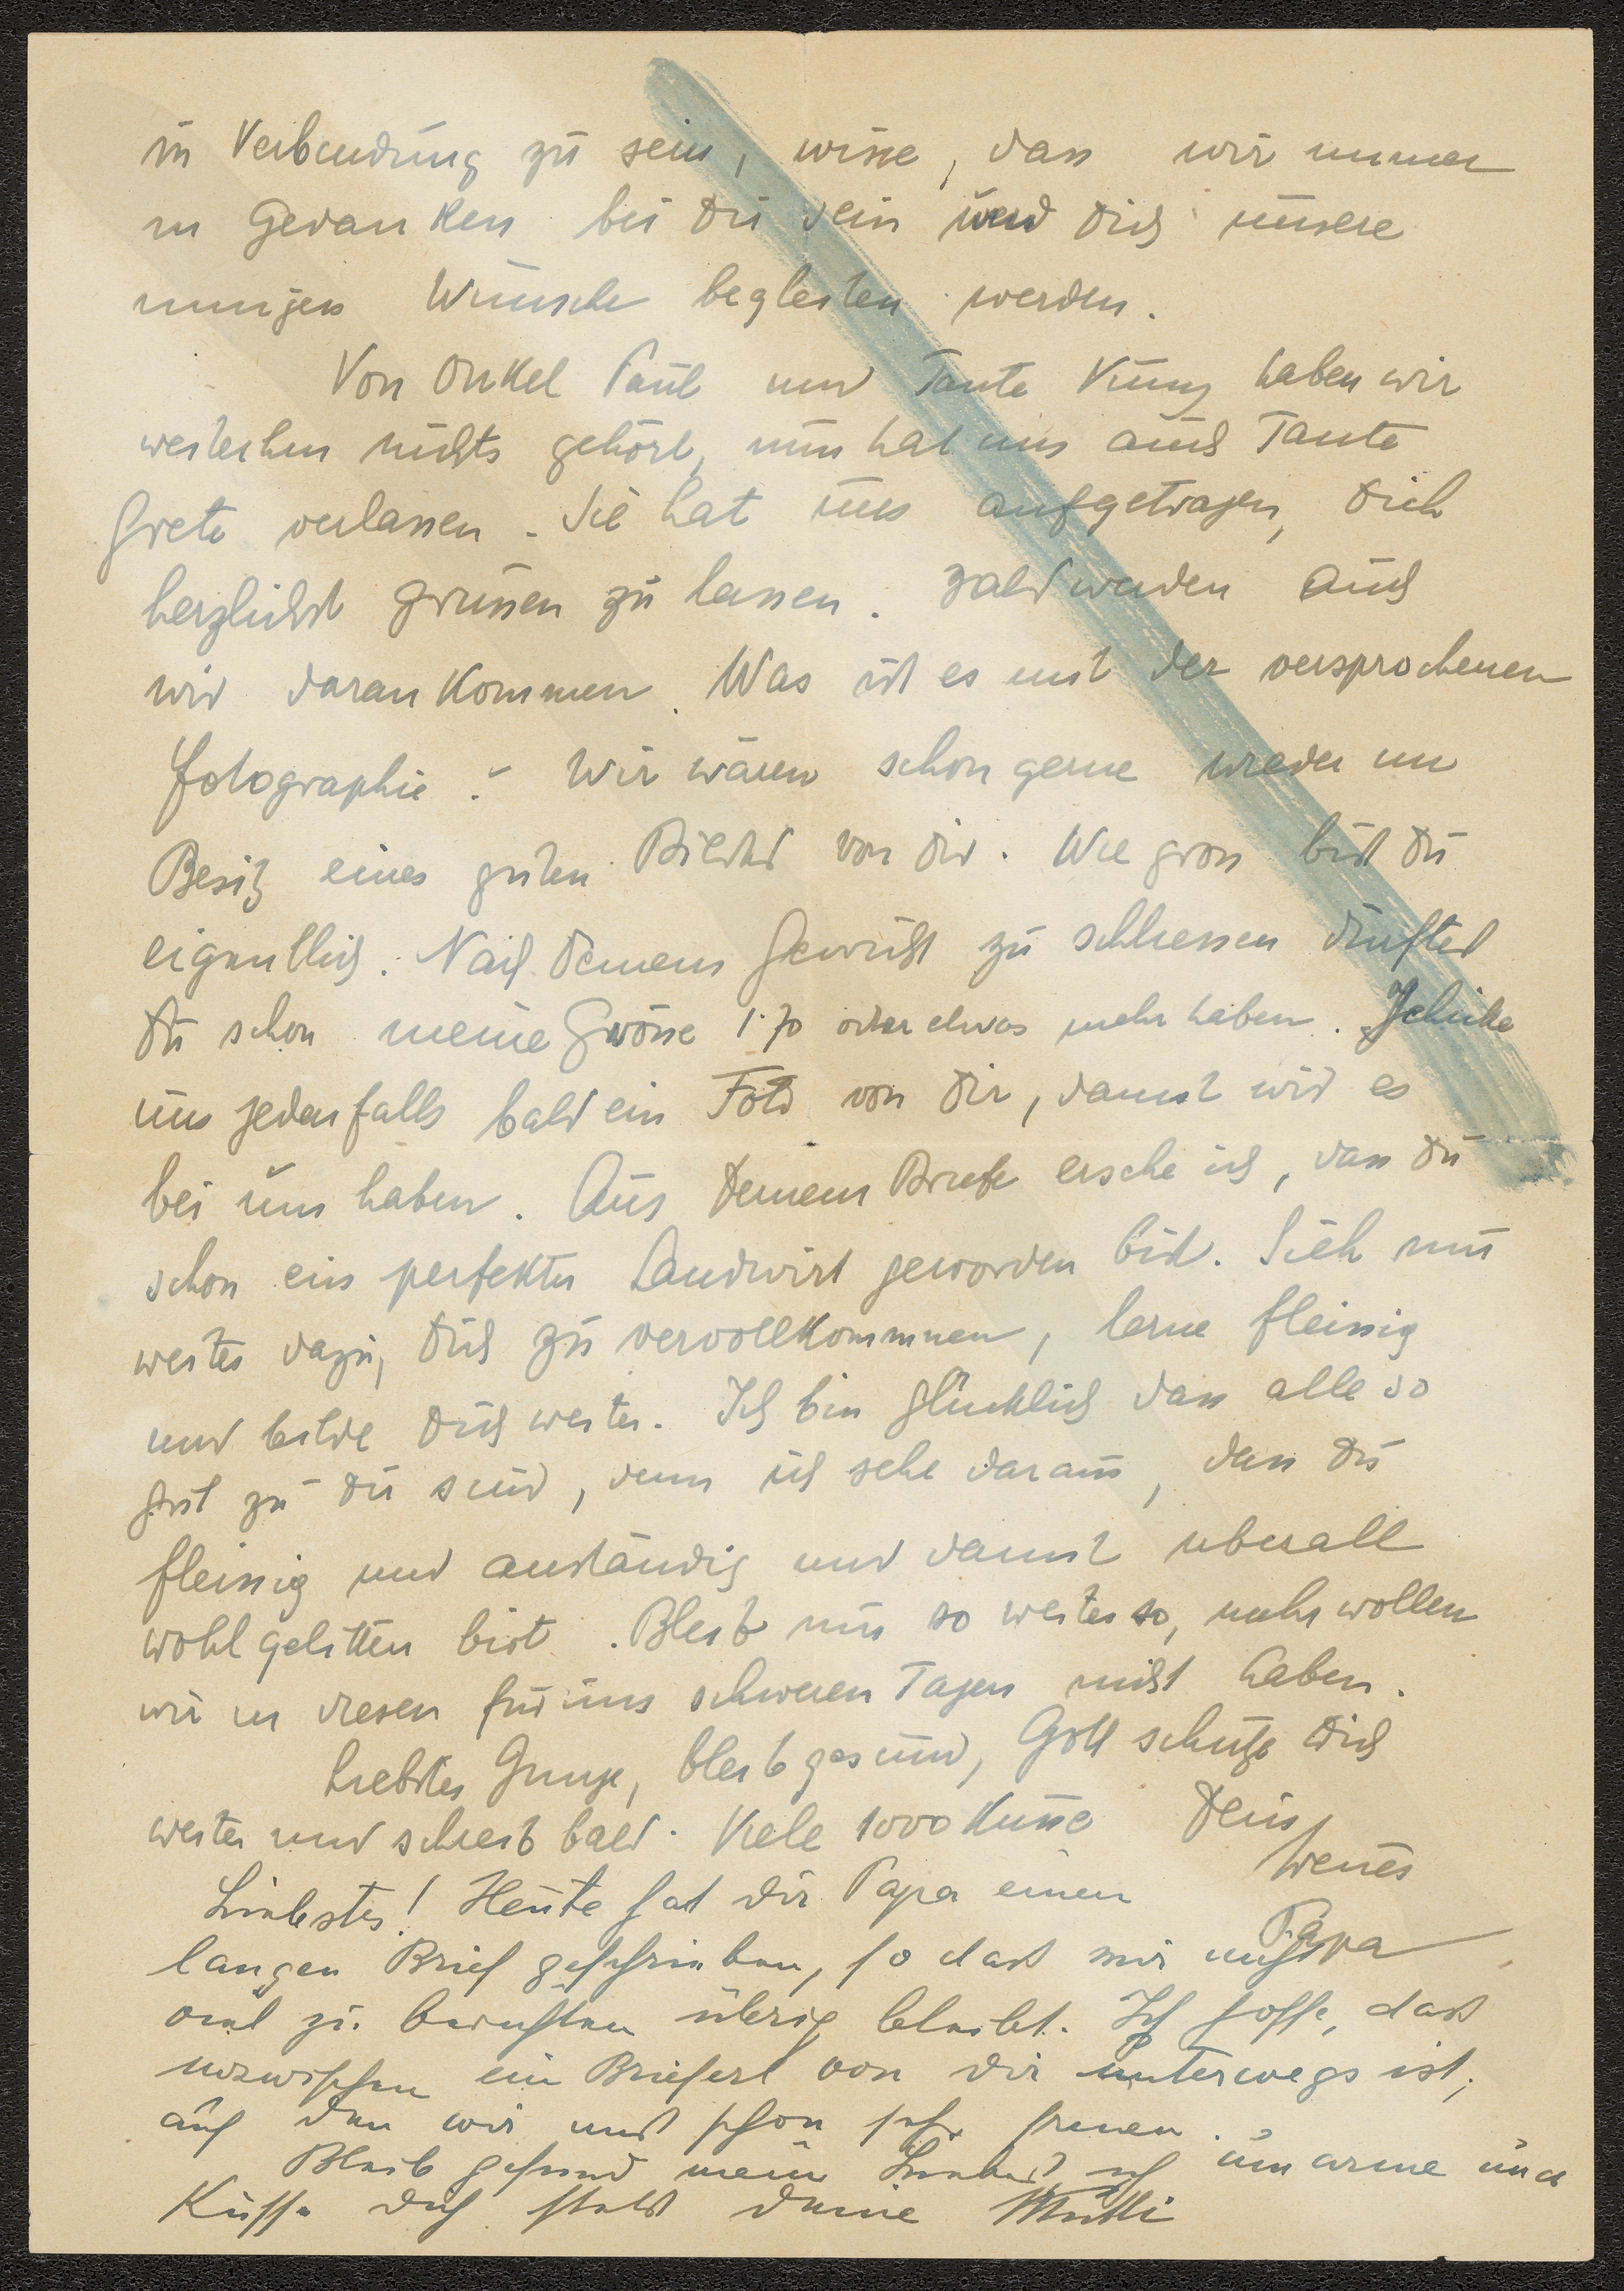 in Verbindung zu sein, wisse, dass wir immer
in Gedanken bei Dir sein und Dich unsere
innigen Wünsche begleiten werden.
Von Onkel Paul und Tante haben wir
weiterhin nichts gehört, nun hat uns auch Tante
Grete verlassen. Sie hat uns aufgetragen, Dich
herzlichst grüssen zu lassen. Bald werden auch
wir daran kommen. Was ist es mit der versprochenen
Fotographie? Wir wären schon gerne wieder im
Besitz eines guten Bildes von Dir. Wie gross bist Du
eigentlich. Nach Deinem Gewicht zu schliessen dürftest
Du schon meine Grösse 1·70 oder etwas mehr haben. Schicke
uns jedenfalls bald ein Foto von Dir, damit wir es
bei uns haben. Aus Deinem Briefe ersehe ich, dass Du
schon ein perfekter Landwirt geworden bist. Sieh nun
weiter dazu, Dich zu vervollkommnen, lerne fleissig
und bilde Dich weiter. Ich bin glücklich dass alle so
gut zu Dir sind, denn ich sehe daraus, dass Du
fleissig und anständig und damit überall
wohl gelitten bist. Bleib nur so weiter so, mehr wollen
wir in diesen für uns schweren Tagen nicht haben.
Liebster Junge, bleib gesund, Gott schütze Dich
weiter und schreib bald. Viele 1000 Küsse Dein
treues
Papa
Liebstes! Heute hat dir Papa einen
langen Brief geschrieben, so dass mir nicht
viel zu berichten übrig bleibt. Ich hoffe, dass
inzwischen ein Brieferl von dir unterwegs ist,
auf den wir uns schon sehr freuen.
Bleib gesund mein Liebstes ich umarme und
Küsse dich stets deine Mutti